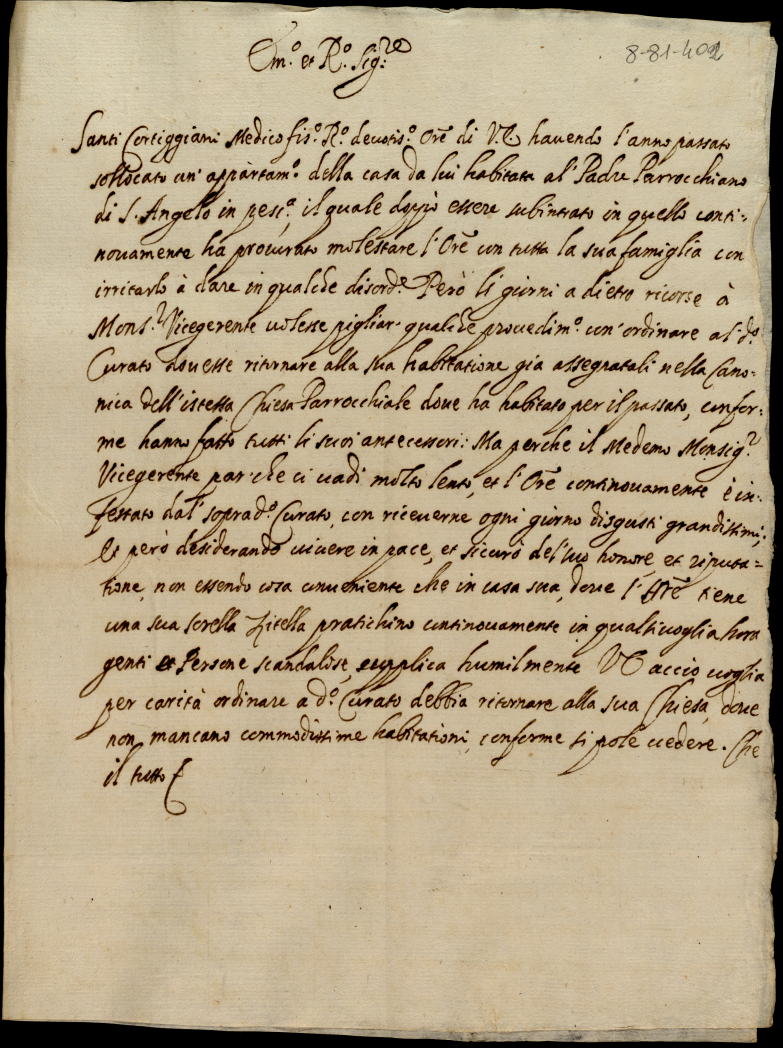 Em.º et R.º Sig.re
8-81-402
Santi Cortiggiani Medico fis.º R.º deuotis.º Ore di V.E. hauendo l'anno passato
sollocato un' appartam.º della casa da lui habitata al' Padre Parrocchiano
di S. Angelo in pesc.ª, il quale doppò essere subintrato in quello conti=
nouamente ha procurato molestare l'Ore con tutta la sua famiglia con
irritarlo à dare in qualche disord.e Però li giorni a dietro ricorse à
Mons.r Vicegerente uolesse pigliar qualche prouedim.º con' ordinare al' d.º
Curato douesse ritornare alla sua habitatione già assegnatali nella Cano=
nica dell'istessa Chiesa Parrocchiale doue ha habitato per il passato, confor=
me hanno fatto tutti li suoi antecessori: Ma perche il Medemo Monsig.r
Vicegerente par' che ci uadi molto lento, et l'Ore continouamente è in=
festato dal' soprad.º Curato, con riceuerne ogni giorno disgusti grandissimi,
et però desiderando uiuere in pace, et sicurò del' suo honore, et riputa=
tione, non essendo cosa conueniente che in casa sua, doue l'Ore tiene
una sua sorella Zitella pratichino continouamente in qualsiuoglia hora
genti et Persone scandalose, supplica humilmente VE acciò uoglia
per carità ordinare a d.º Curato debbia ritornare alla sua Chiesa, doue
non mancano commodissime habitationi, conforme si pole uedere. Che
il tutto